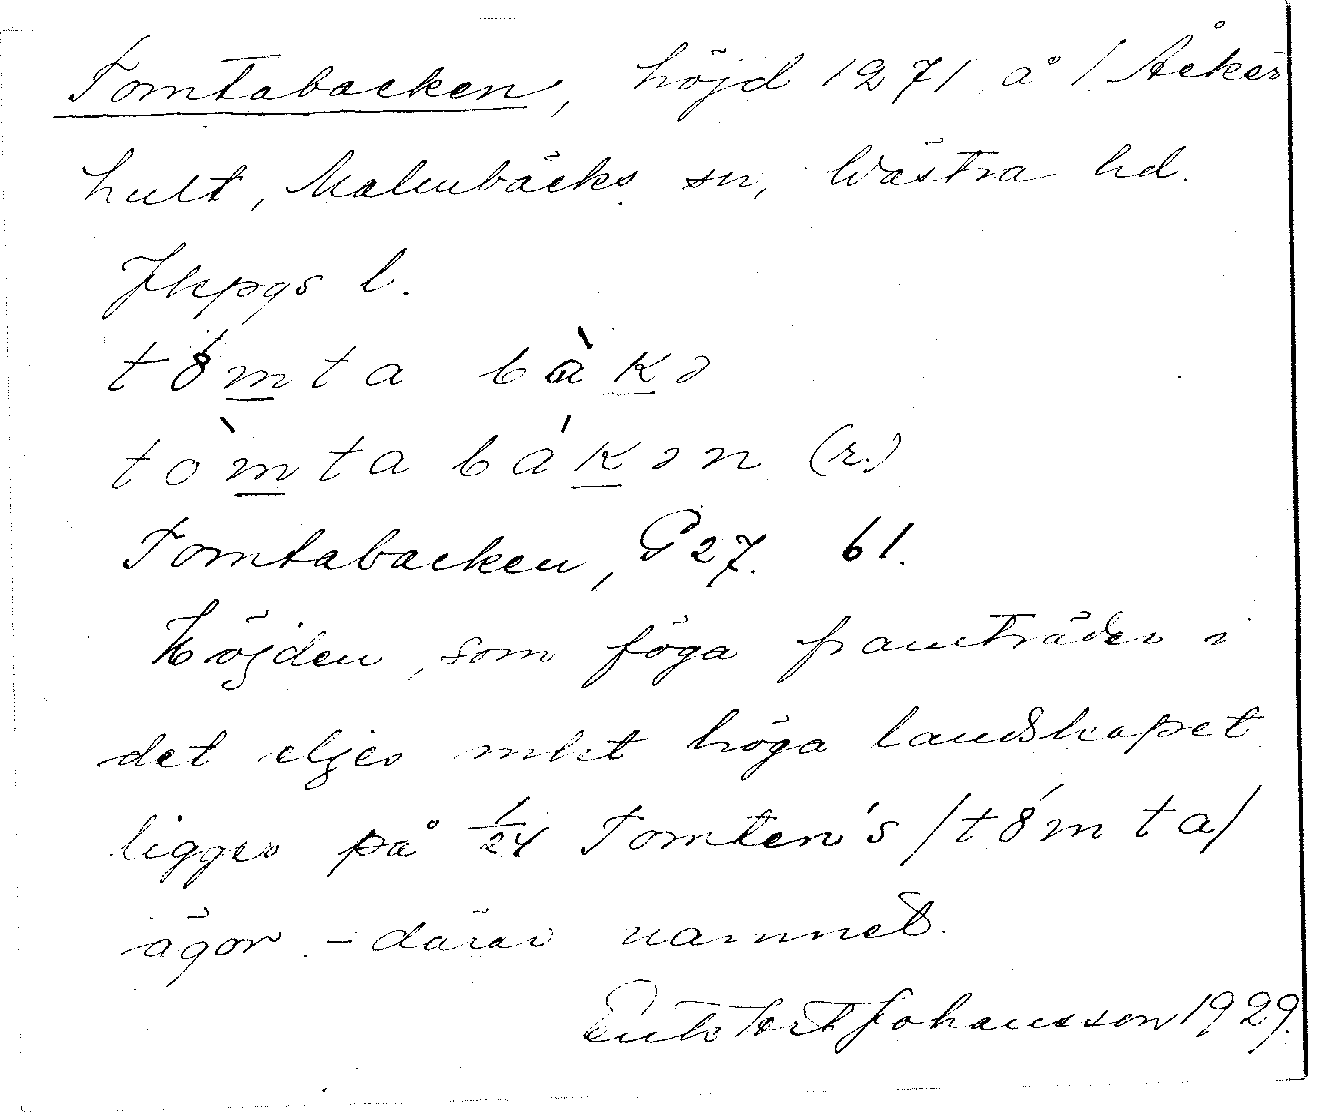 Tomtabacken, höjd 1271 å 1 Åkers
hult, Malmbäcks sn, Västra hd.
Jkpgs l.
tómta bàkə
tòmta bákən (r.)
Tomtabacken, G 27. 61.
Höjden, som föga framträder i
det eljes mkt höga landskapet
ligger på 1/24 Tomten's /tómta/
ägor - därav namnet.
Johansson 1929.